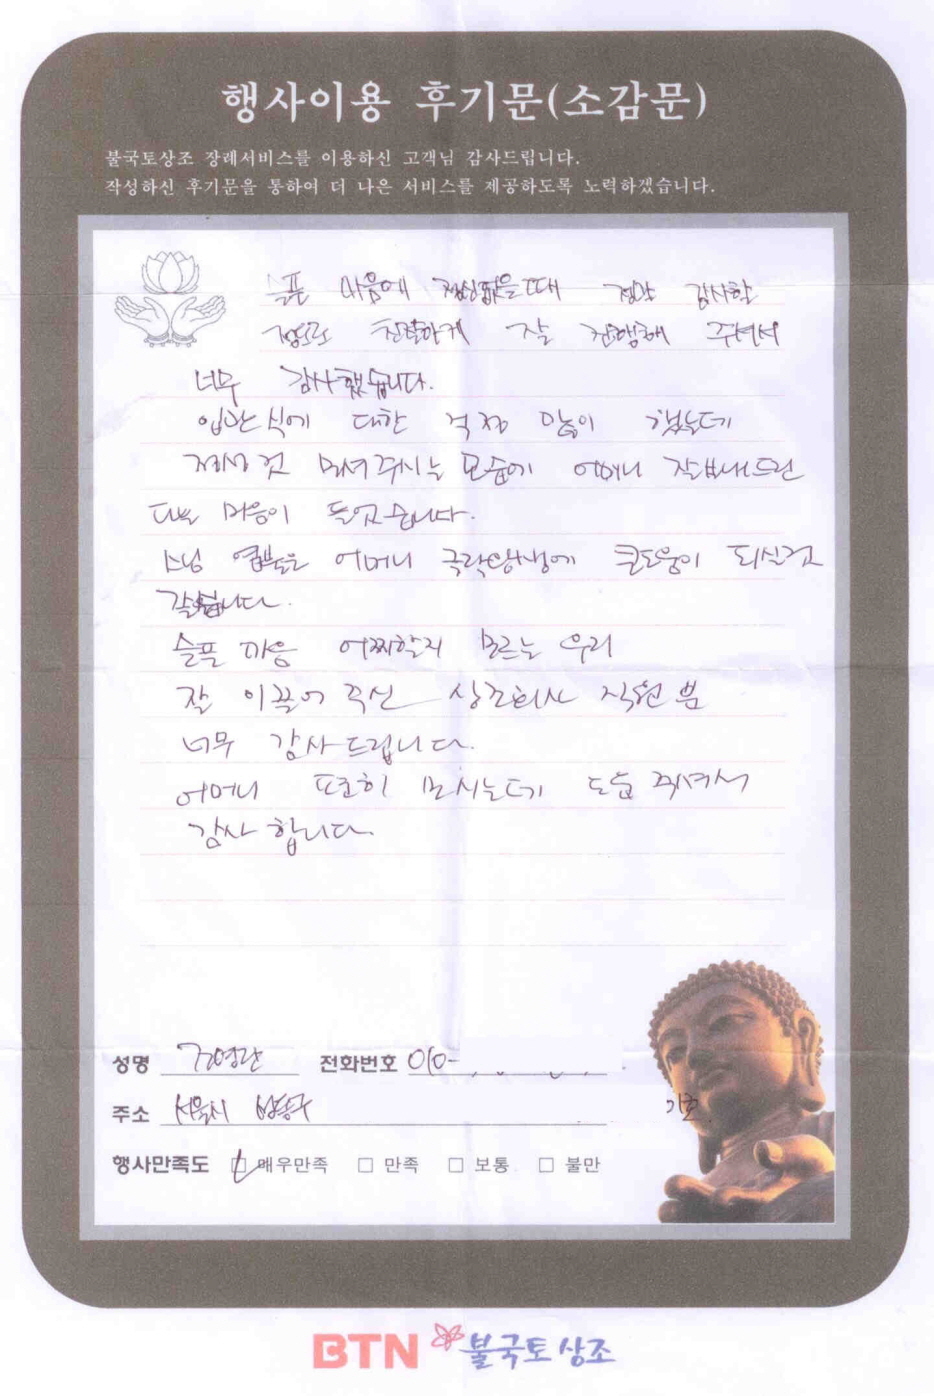 행사이용 후기문(소감문)
불국토상조 장례서비스를 이용하신 고객님 감사드립니다.
작성하신 후기문을 통하여 더 나은 서비스를 제공하도록 노력하겠습니다.
슬픈 마음에 정신없을때 정말 감사할
정도로 친절하게 잘 진행해 주셔서
너무 감사했습니다.
입관식에 대한 걱정 많이 했는데
정성것 마셔주시는 모습에 어머니 잘보내드린
다는 마음이 들었습니다.
스님 염불은 어머니 극락왕생에 큰도움이 되신것
같습니다.
슬픔 마음 어찌할지 모르는 우리
잘 이끌어 주신 상조회사 직원 분
너무 감사드립니다.
어머니 또한히 모시는데 도움 주셔서
감사 합니다.
성명 전화번호 010-
주소 서울시
행사만족도 매우만족 □ 만족 □ 보통 □ 불만
BTN 불국토상조